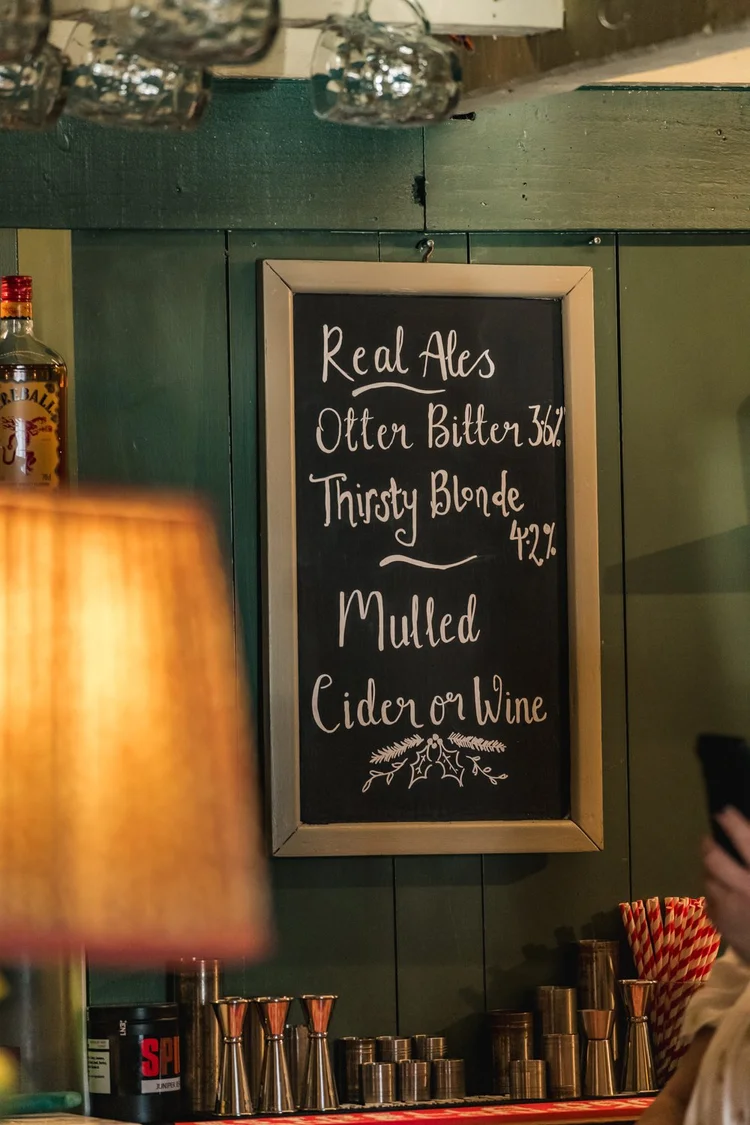 Real Ales
Otter Bitter 3.6%
Thirsty Blonde
4.2%
Mulled
Cider or Wine
REBALL
SPI
JUNIPER